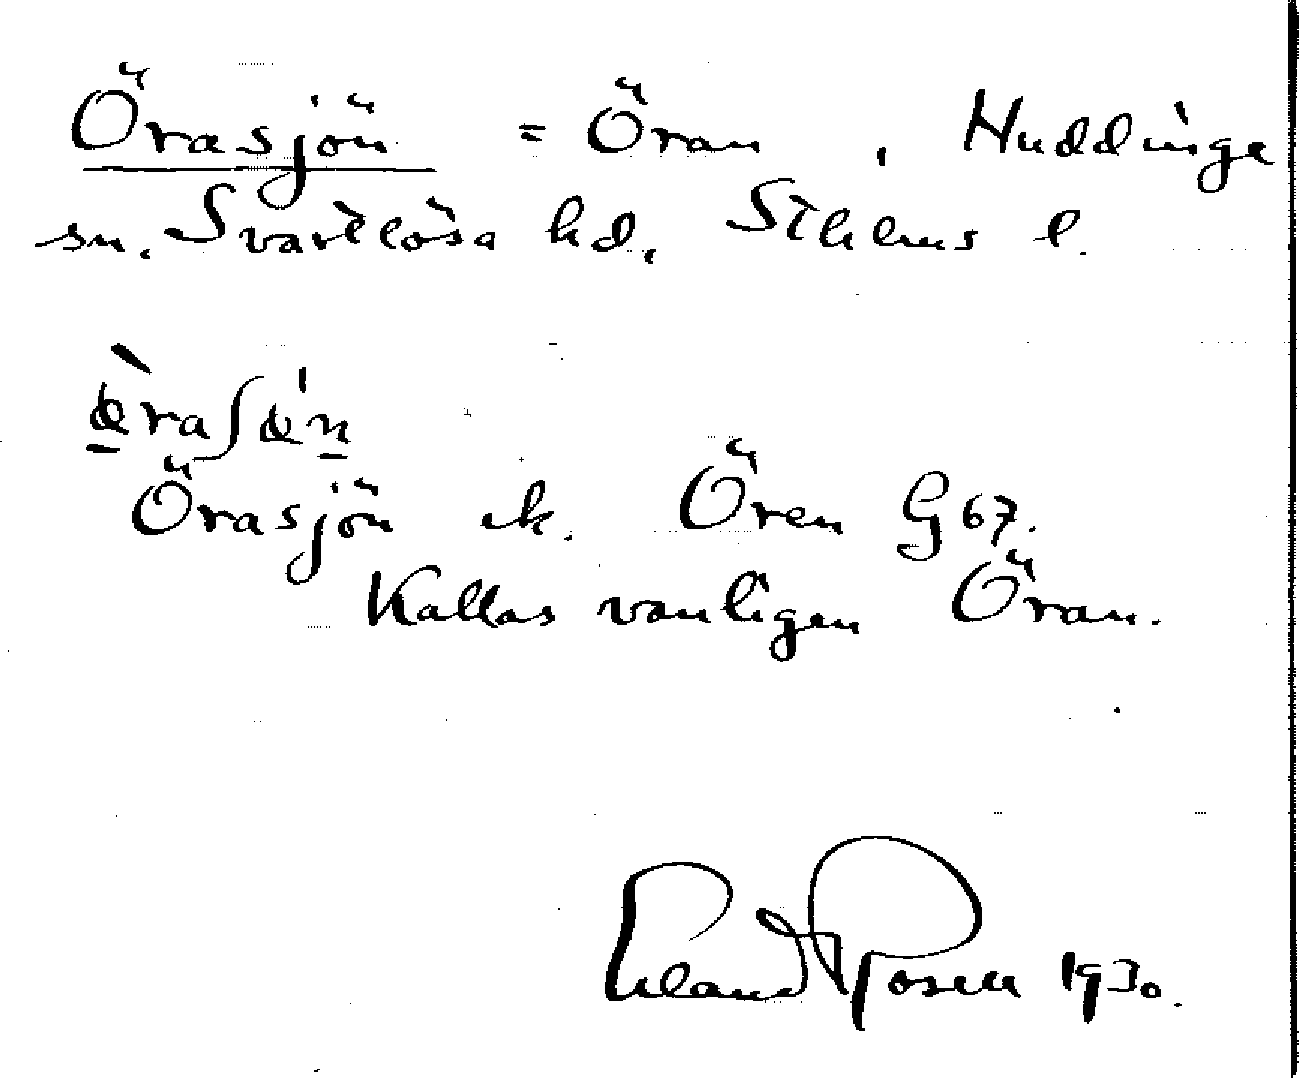 Örasjön = Öran, Huddinge
sn. Svartlösa hd. Sthlms l.
Örasjön ek. Ören G 67.
Kallas vanligen Öran.
Erland Rosell 1930.